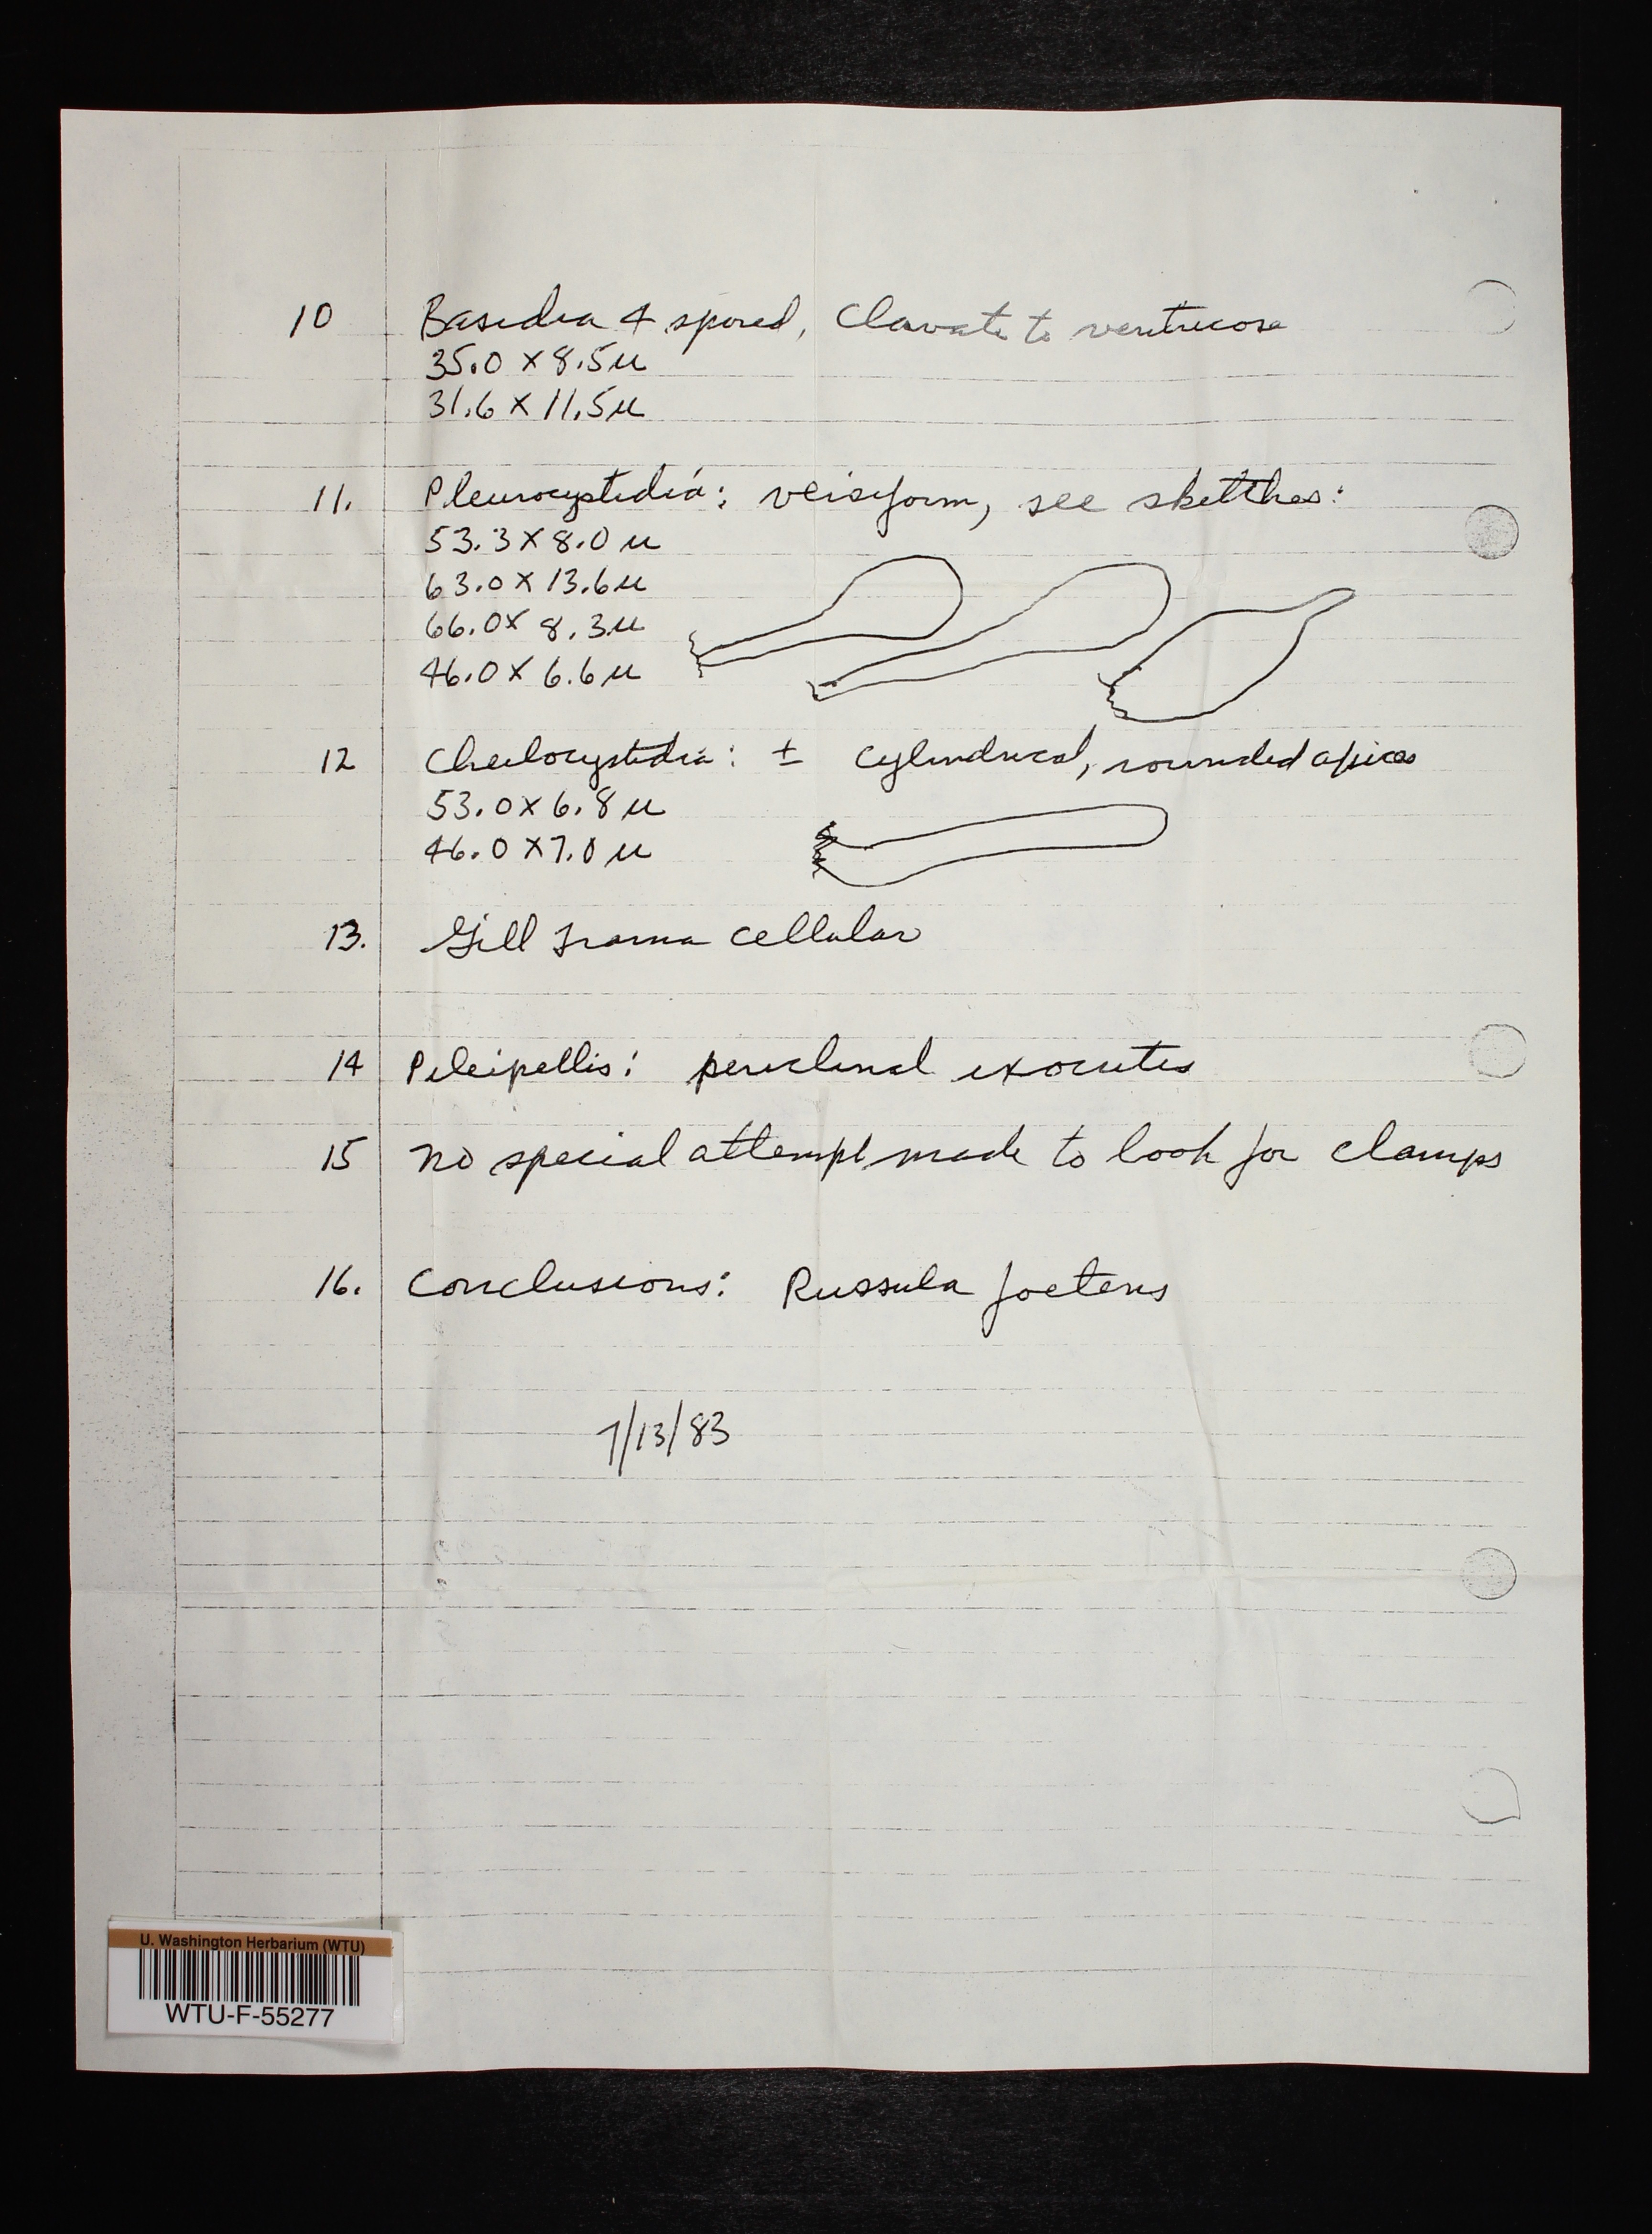 10 Basidia 4 spored, Clavate to ventricose
35.0 X 8.5 µ
31.6 X 11.5 µ
11. Pleurocystidia: versiform, see sketches:
53.3 X 8.0 µ
63.0 X 13.6 µ
66.0 X 8.3 µ
46.0 X 6.6 µ
12 Cheilocystidia: ± cylindrical, rounded apices
53.0 X 6.8 µ
46.0 X 7.0 µ
13. Gill Trama cellular
14 Pileipellis: periclinal
15 no special attempt made to look for clamps
16. Conclusions: Russula foetens
7/13/83
U. Washington Herbarium (WTU)
WTU-F-55277